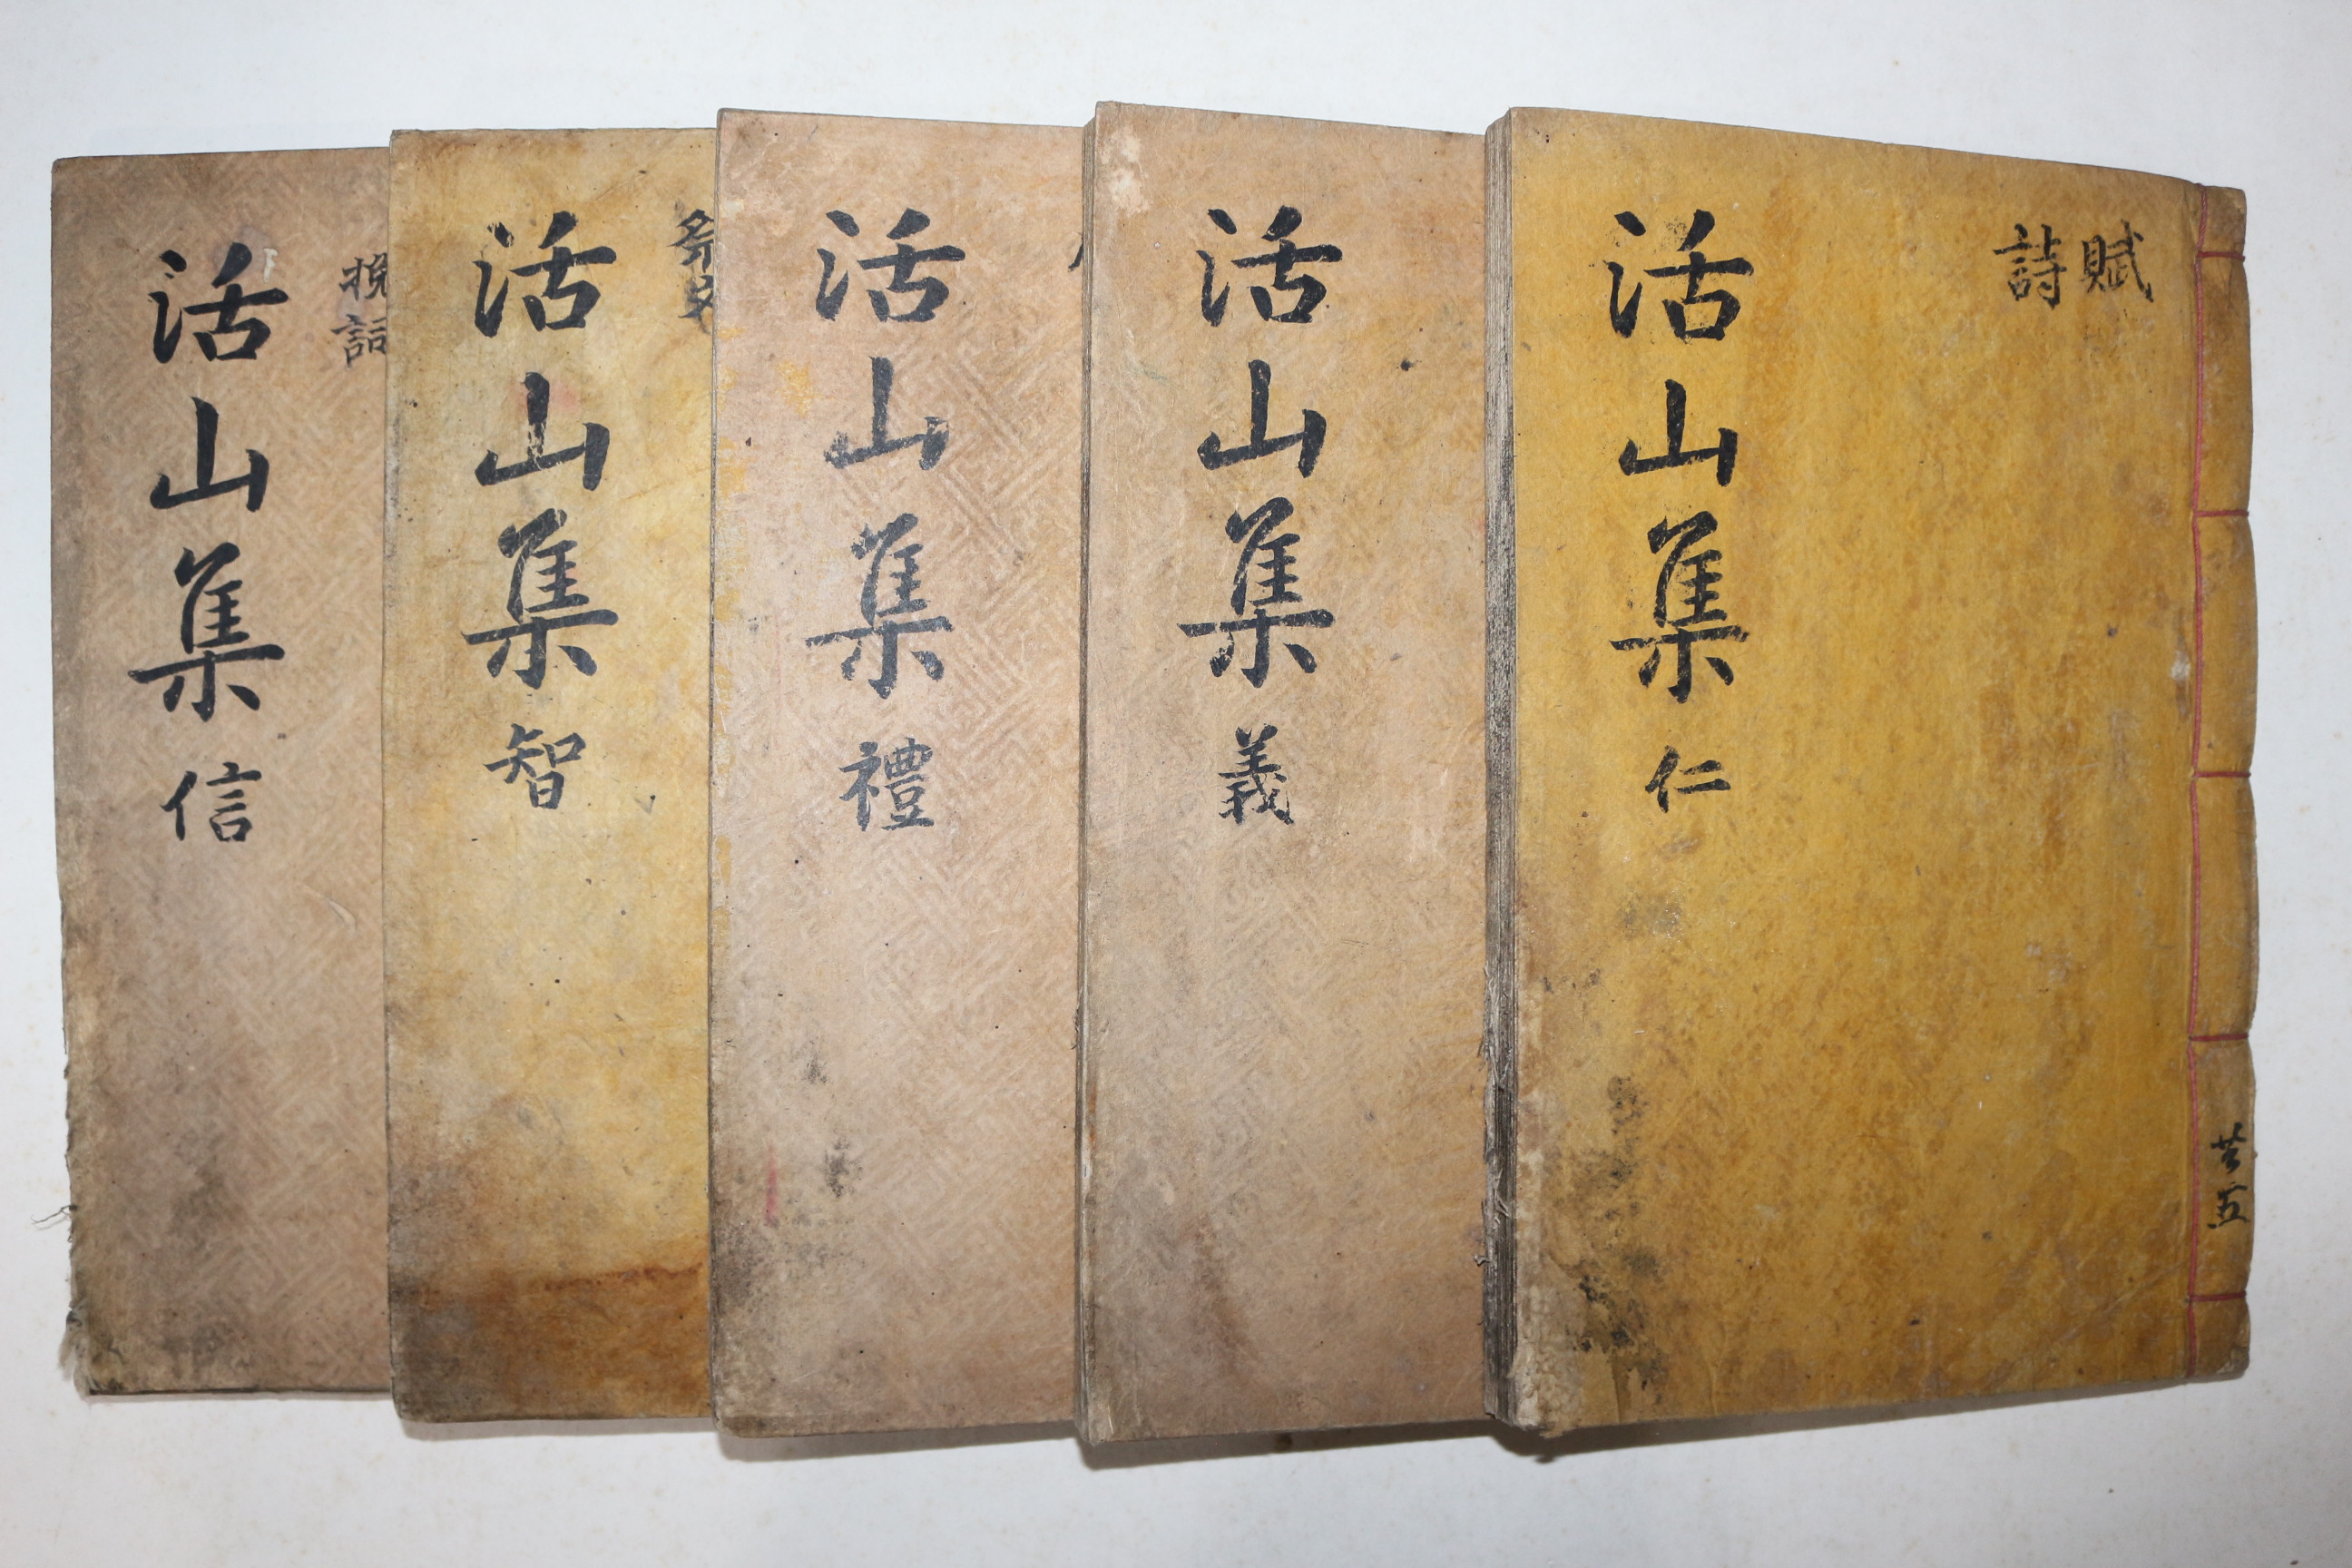 賦
詩
活山集 仁
共五
活山集 義
活山集 禮
祭文
活山集 智
挽詞
活山集 信